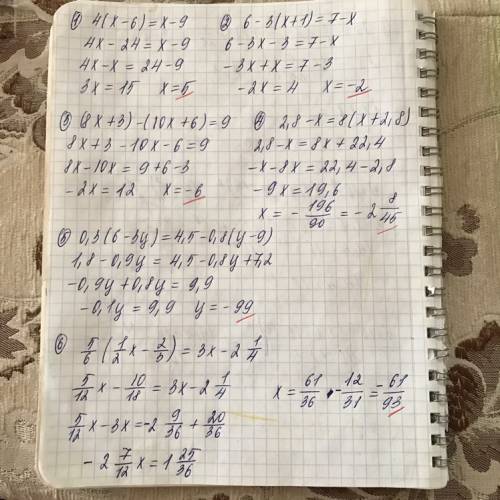 ① 4(x-6)=x-9
4x-24=x-9
4x-x=24-9
3x=15 x=5
② 6-3(x+1)=7-x
6-3x-3=7-x
-3x+x=7-3
-2x=4 x=-2
③ (8x+3)-(10x+6)=9
8x+3-10x-6=9
8x-10x=9+6-3
-2x=12 x=-6
④ 2,8-x=8(x+2,8)
2,8-x=8x+22,4
-x-8x=22,4-2,8
-9x=19,6
x=-196/90=-2 8/45
⑤ 0,3(6-3y)=4,5-0,8(y-9)
1,8-0,9y=4,5-0,8y+7,2
-0,9y+0,8y=9,9
-0,1y=9,9 y=-99
⑥ 5/6(1/2x-2/3)=3x-2 1/4
5/12x-10/18=3x-2 1/4
5/12x-3x=-2 9/36+20/36
-2 7/12x=1 25/36
x=61/36·-12/31=-61/93